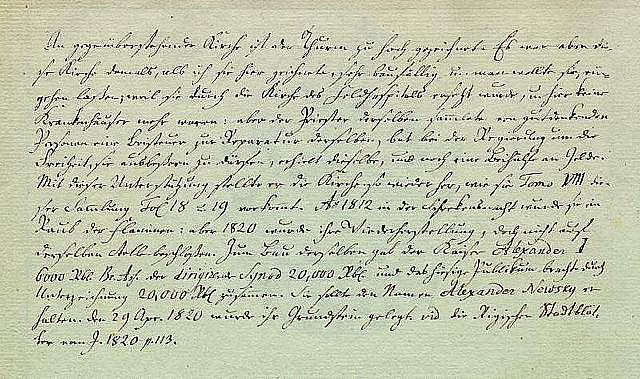 An gegenüberstehender Kirche ist der Thurm zu hoch gezeichnet. Es war aber die-
se Kirche damals, als ich sie hier zeichnete, sehr baufällig u. man wollte sie ein-
gehen lassen, weil sie durch die Kirche des Feldhospitals ersetzt wurde, u. hier keine
Krankenhäuser mehr waren: aber der Priester derselben samlete von gutdenkenden
Personen eine Beisteuer zur Reparatur derselben, bat bei der Regierung um die
Freiheit, sie ausbessern zu dürfen, erhielt dieselbe, und noch eine Beihülfe an Gelde.
Mit dieser Unterstützung stellte er die Kirche so wieder her, wie sie Tomo VIII die-
ser Samlung Fol 18 u. 19 vorkomt. Aō 1812 in der Schreckensnacht wurde sie ein
Raub der Flammen: aber 1820 wurde ihre Wiederherstellung, doch nicht auf
derselben Stelle beschlossen. Zum Bau derselben gab der Kaiser Alexander I
6000 Rbl. B. Ass. der dirigirende Synod 20,000 Rbl. und das hiesige Publikum bracht durch
Unterzeichnung 20,000 Rbl. zusamen. Sie sollte den Namen Alexander Newsky er-
halten. den 29 Apr. 1820 wurde ihr Grundstein gelegt. vid die Rigischen Stadtblät-
ter vom J. 1820 p. 113.